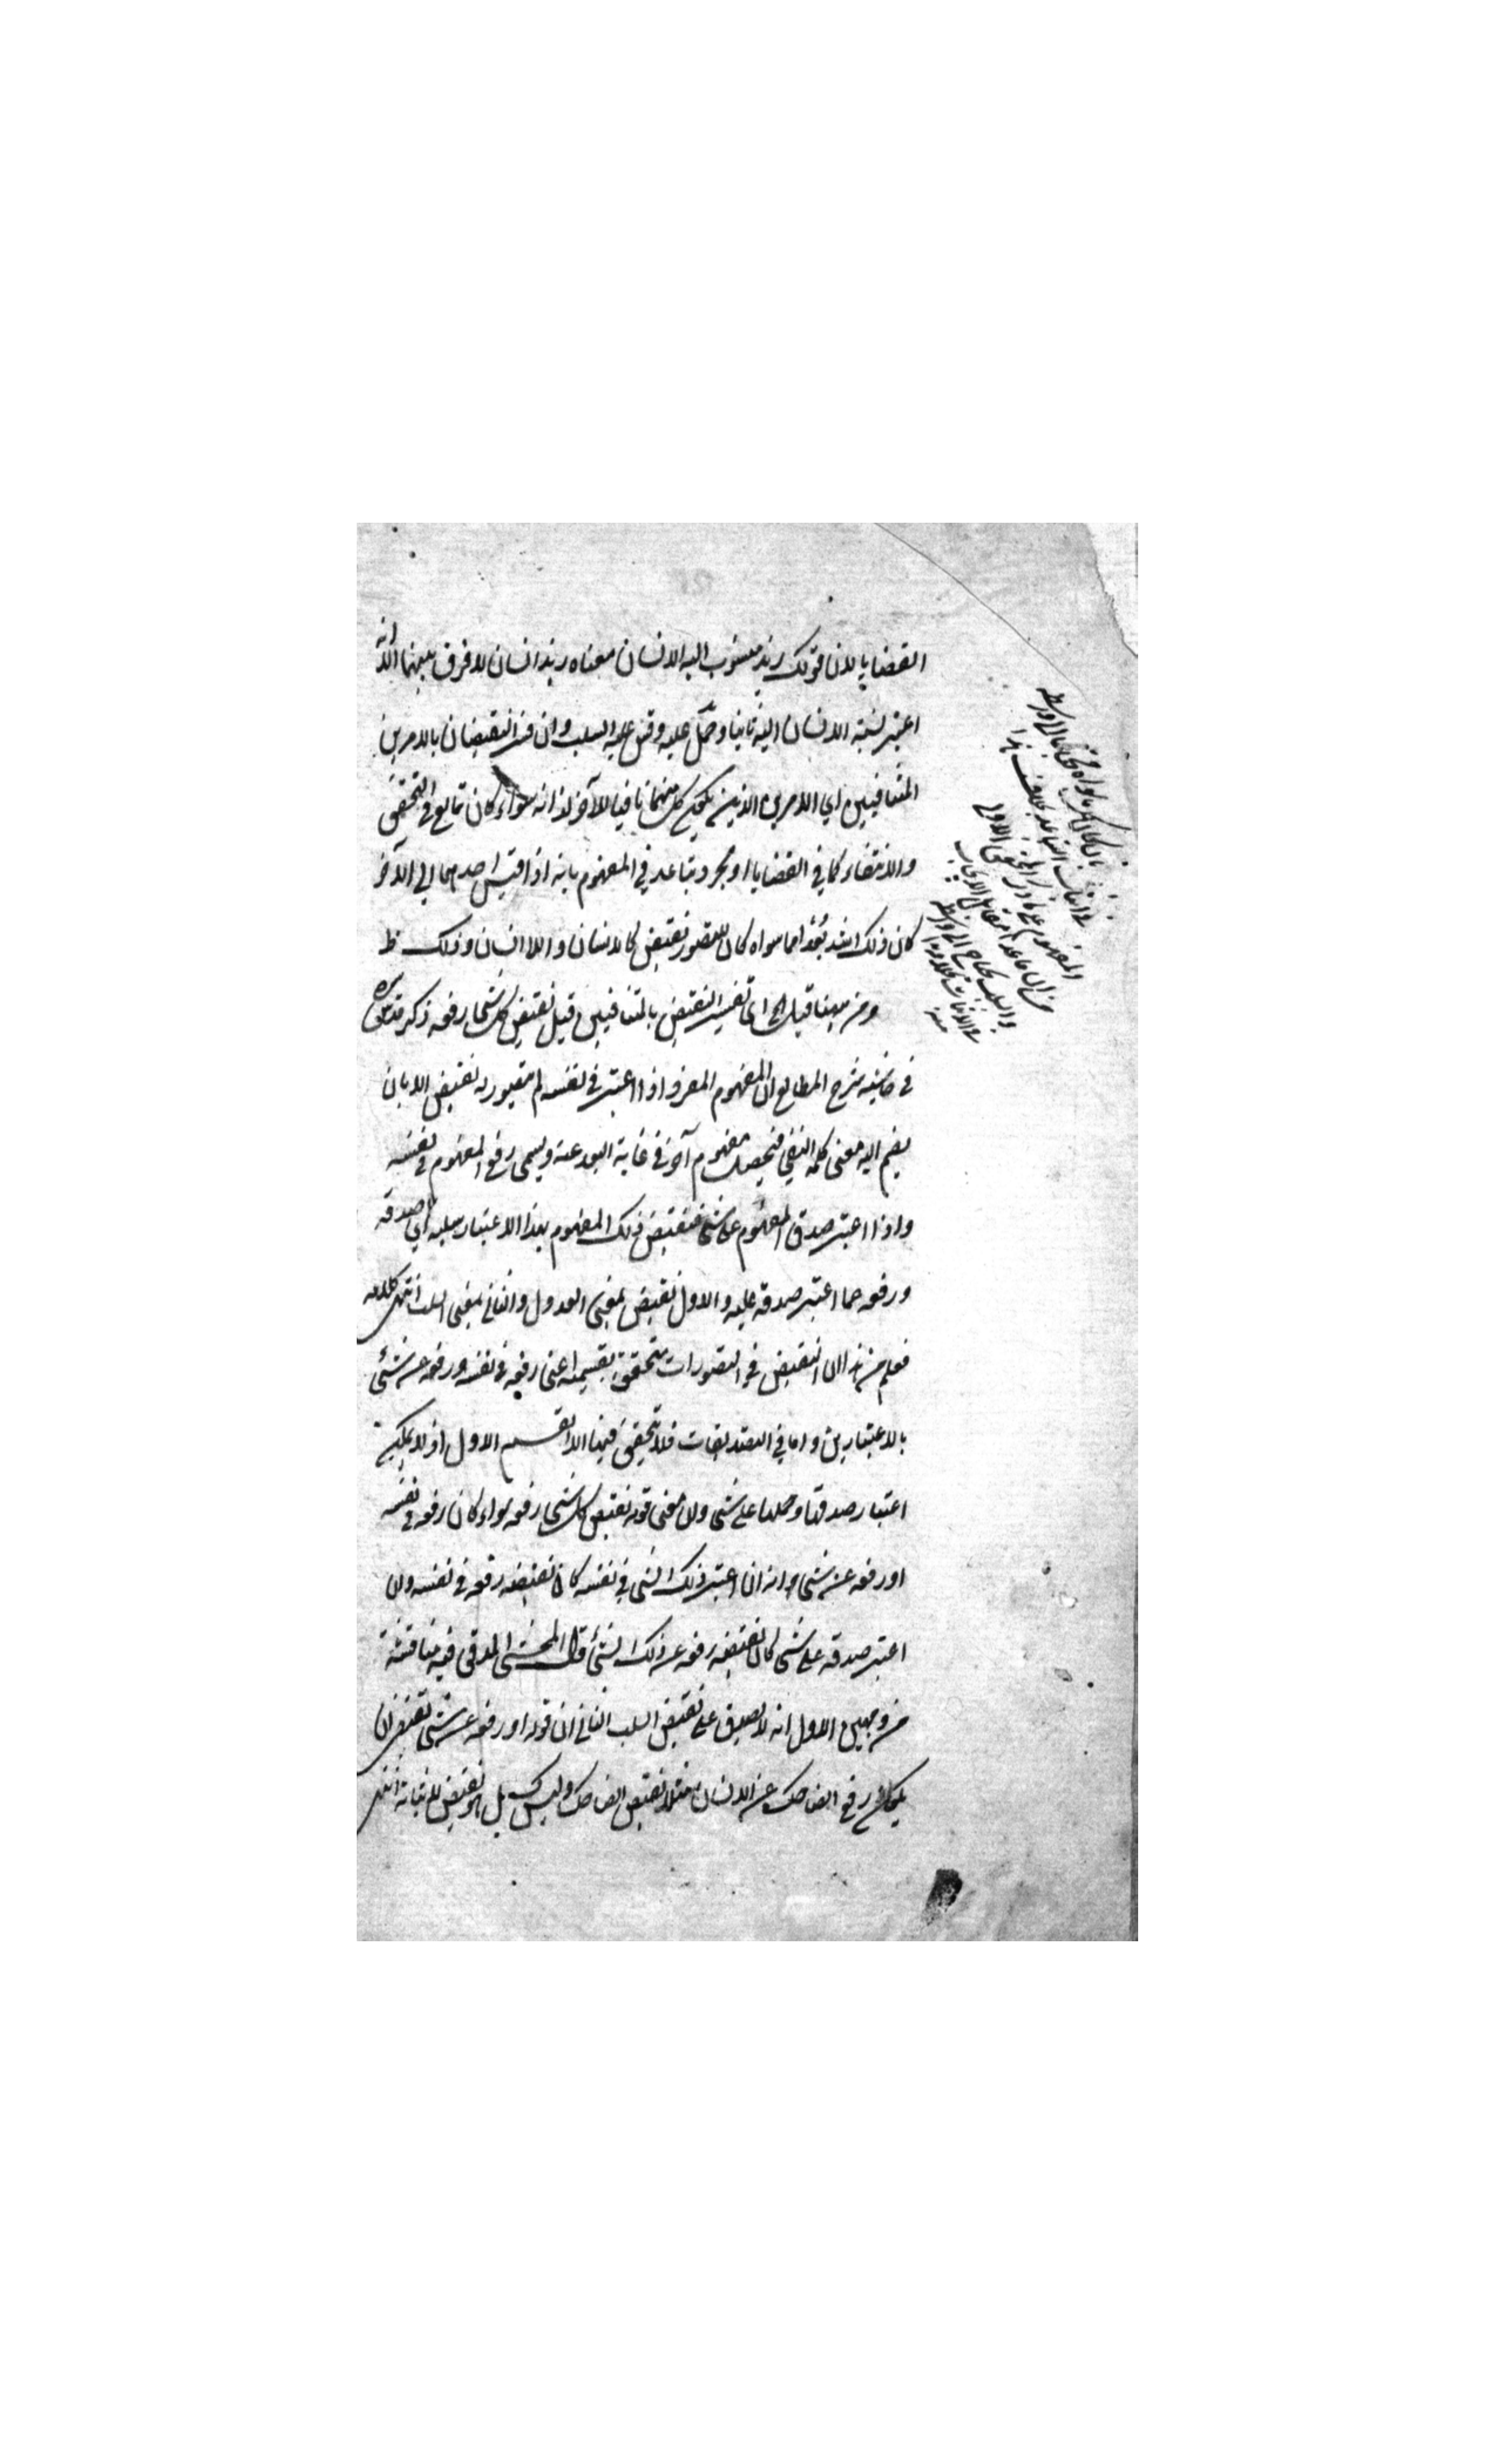 القضايا لان قولك زيد منسوب اليه الانسان معناه زيد انسان لا فرق بينهما الا انه
اعتبر نسبة الانسان اليه ثانيا وحمل عليه وقس عليه السلب وان فسر النقيضان بالامرين
المتنافيين اي الامرين الذين يكون كل منهما نافيا للآخر لذاته سواء كان تمانع في التحقق
والانتفاء كما في القضايا او مجرد تباعد في المفهوم بانه اذا قيس احدهما الى الآخر
كان ذلك اشد بعدا مما سواه كان للتصور نقيض كالانسان واللاانسان وذلك ظ
ومن ههنا قيل الخ اي تفسير النقيض بالمتنافيين قيل نقيض كل شئ رفعه ذكر قدس سره
في حاشية شرح المطالع ان المفهوم المفرد اذا اعتبر في نفسه لم يتصور له نقيض الا بان
يضم اليه معنى كلمة النفي فيحصل مفهوم آخر في غاية البعد عنه ويسمى رفع المفهوم في نفسه
واذا اعتبر صدق المفهوم على شئ فنقيض ذلك المفهوم بهذا الاعتبار سلبه اي صدقه
ورفعه عما اعتبر صدقه عليه والاول نقيض بمعنى العدول والثاني بمعنى السلب انتهى كلامه
فعلم من هذا ان النقيض في التصورات يتحقق بقسميه اعني رفعه في نفسه ورفعه عن شئ
بالاعتبارين واما في التصديقات فلا يتحقق فيها الا القسم الاول اذ لا يمكن
اعتبار صدقها وحملها على شئ ولان معنى قوله نقيض كل شئ رفعه سواء كان رفعه في نفسه
او رفعه عن شئ انه ان اعتبر ذلك الشئ في نفسه كان نقيضه رفعه في نفسه وان
اعتبر صدقه على شئ كان نقيضه رفعه عن ذلك الشئ قال المحشي المدقق فيه مناقشة
من وجهين الاول انه لا يصدق على نقيض السلب الثاني ان قوله او رفعه عن شئ يقتضي ان
يكون رفع الضاحك عن الانسان مثلا نقيض الضاحك وليس ك بل هو نقيض لاثباته انتهى